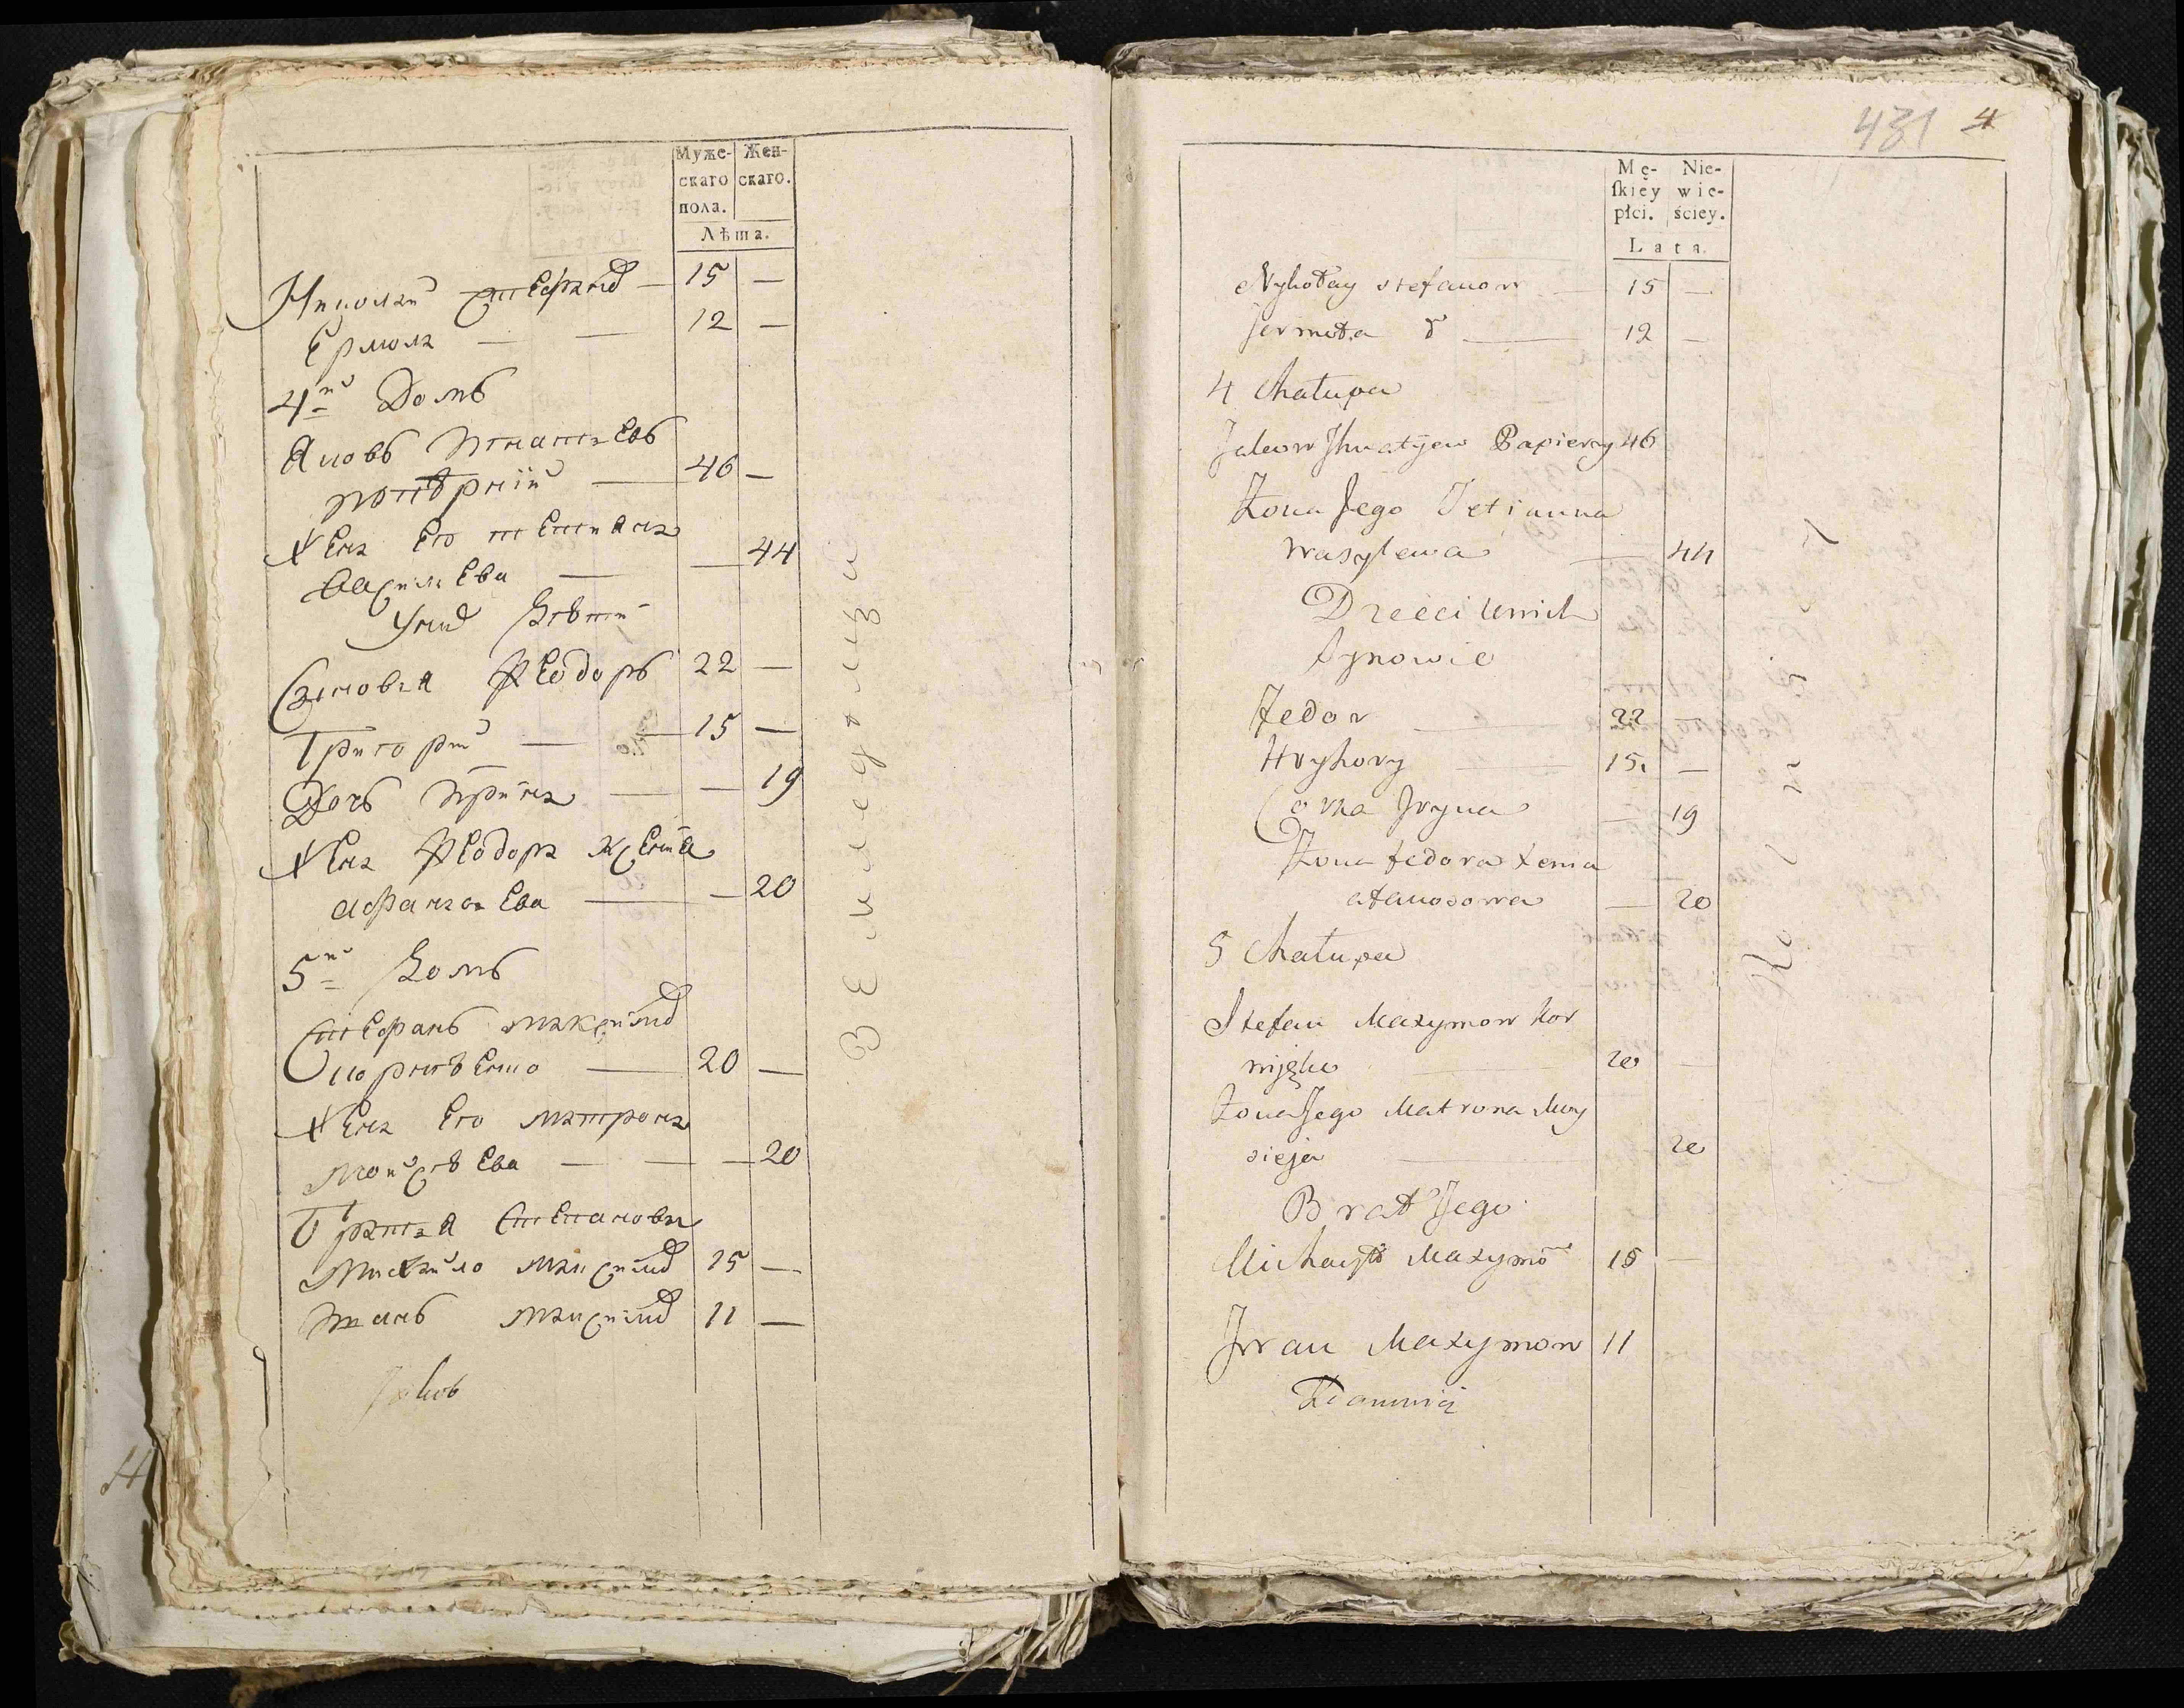 Муже- Жен-
скаго скаго.
пола.
Лѣта.
Николай Стефанов — 15 —
Ермола — — 12 —
4й Домъ
Яковъ Игнатьевъ
46 —
Жена Его Тетияна
Васильева — — 44
У них дѣти
Сыновья Феодоръ 22 —
Григорий — — 15 —
Дочь Ирина — — 19
Жена Феодора Ксения
Афанасьева — — 20
5й Домъ
Стефанъ Максимов
Корнѣенко — 20 —
Жена Его Матрона
Мойсѣева — — — 20
Братья Степановы
Михайло Максимов 15 —
Иванъ Максимов 11 —
Земледѣльцы
431 4
Mę- Nie-
ſkiey wie-
płci. ściey.
Lata.
Nykołay Stefanow — 15 —
Jermoła — 12 —
4 Chałupa
Jakow Ihnatyew 46
Żona Jego Tetianna
Wasylewa — 44
Dzieci Unich
Synowie
Fedor — 22 —
Hryhory — 15 —
Corka Iryna — 19
Żona Fedora Xenia
Afanosowa — 20
5 Chałupa
Stefan Maxymow Kor
nijęko 20 —
Żona Jego Matrona Moy
sieja 20
Brat Jego
Michayło Maxymow 15 —
Iwan Maxymow 11
Rolnicy